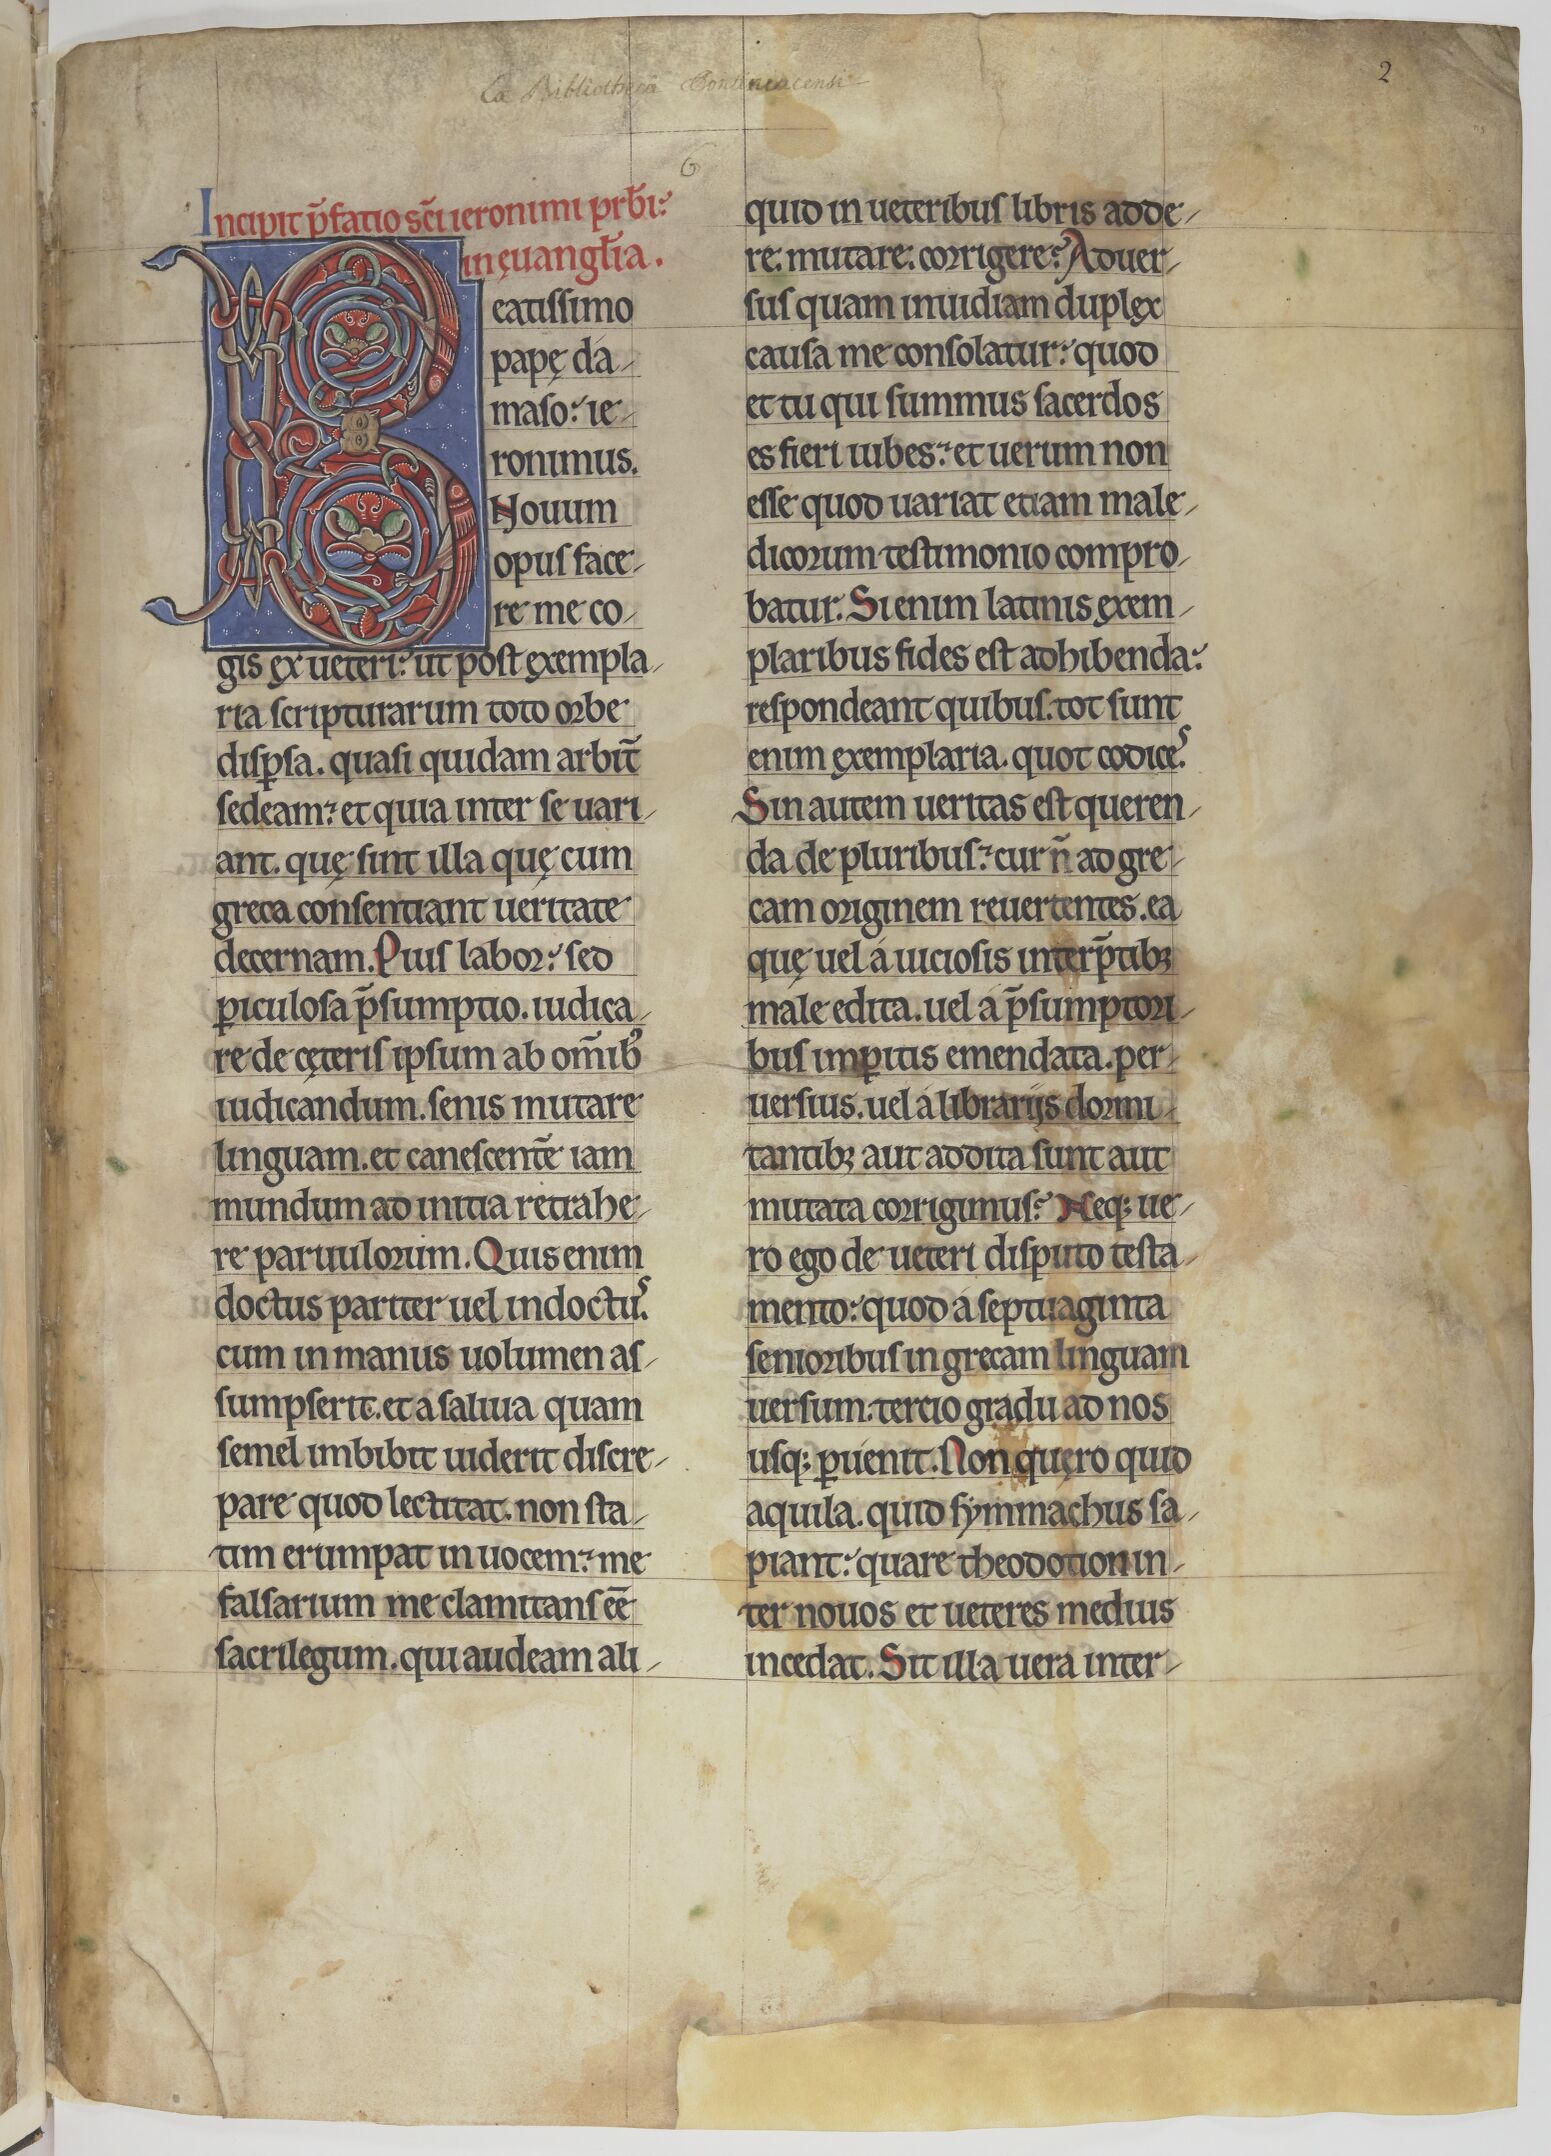 Ex Bibliotheca Pontiniacensi
2
6
Incipit p̄fatio sc̄i ieronimi prb̄i:
in ęuangl̄ia.
Beatissimo
papę da-
maso: ie-
ronimus.
Nouum
opus face-
re me co-
gis ex ueteri: ut post exempla-
ria scripturarum toto orbe
disꝑsa. quasi quidam arbit̄
sedeam: et quia inter se uari-
ant. quę sint illa quę cum
greca consentiant ueritate
decernam. Pius labor: sed
ꝑiculosa p̄sumptio. iudica-
re de cęteris ipsum ab om̄ibꝰ
iudicandum. senis mutare
linguam. et canescentē iam
mundum ad initia retrahe-
re paruulorum. Quis enim
doctus pariter uel indoctus.
cum in manus uolumen as-
sumpserit. et a saliua quam
semel imbibit uiderit discre-
pare quod lectitat. non sta-
tim erumpat in uocem: me
falsarium me clamitans eē̄
sacrilegum. qui audeam ali-
quid in ueteribus libris adde-
re. mutare. corrigere? Aduer-
sus quam inuidiam duplex
causa me consolatur: quod
et tu qui summus sacerdos
es fieri iubes: et uerum non
esse quod uariat etiam male-
dicorum testimonio compro-
batur. Si enim latinis ęxem-
plaribus fides est adhibenda:
respondeant quibus. tot sunt
enim ęxemplaria. quot codices.
Sin autem ueritas est queren-
da de pluribus: cur n̄ ad gre-
cam originem reuertentes. ea
quę uel á uiciosis interp̄tibꝫ
male edita. uel á p̄sumptori-
bus imꝑitis emendata. per-
uersius. uel á librarijs dormi-
tantibꝫ aut addita sunt aut
mutata corrigimus? Neqꝫ ue-
ro ego de ueteri disputo testa-
mento: quod á septuaginta
senioribus in grecam linguam
uersum. tercio gradu ad nos
usqꝫ ꝑuenit. Non quęro quid
aquila. quid symmachus sa-
piant: quare theodotion in-
ter nouos et ueteres medius
incedat. Sit illa uera inter-